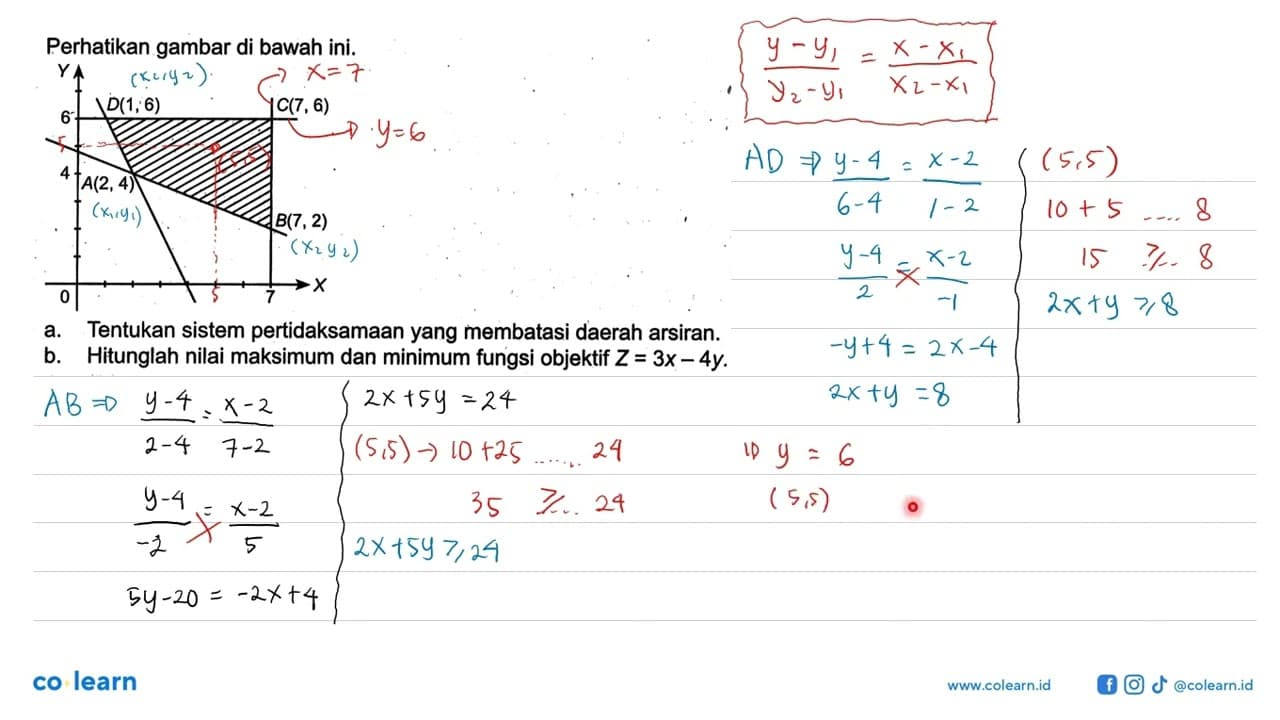 Perhatikan gambar di bawah ini.
Y
(x2,y2)
x = 7
D(1, 6)
C(7, 6)
6
y = 6
5
(5,5)
4
A(2, 4)
(x1,y1)
B(7, 2)
(x2 y2)
0
5
7
X
a. Tentukan sistem pertidaksamaan yang membatasi daerah arsiran.
b. Hitunglah nilai maksimum dan minimum fungsi objektif Z = 3x – 4y.
y - y1 / y2 - y1 = x - x1 / x2 - x1
AD ⇒ y-4 / 6-4 = x-2 / 1-2
y-4 / 2 = x-2 / -1
-y+4 = 2x-4
2x+y = 8
(5,5)
10 + 5 .... 8
15 ≥... 8
2x+y ≥ 8
AB ⇒ y-4 / 2-4 = x-2 / 7-2
y-4 / -2 = x-2 / 5
5y-20 = -2x+4
2x+5y = 24
(5,5) → 10+25 ...... 24
35 ≥... 24
2x+5y ≥ 24
y = 6
(5,5)
co learn
www.colearn.id
@colearn.id